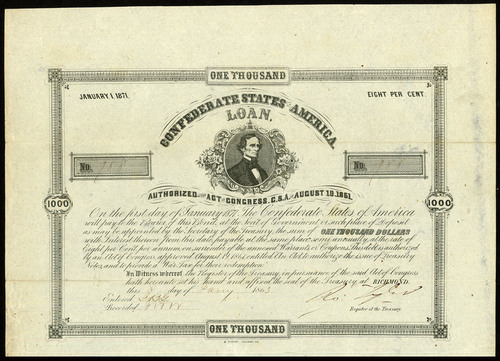 ONE THOUSAND
JANUARY 1, 1871. EIGHT PER CENT.
CONFEDERATE STATES AMERICA.
LOAN.
No. No.
AUTHORIZED ACT CONGRESS, C.S.A. AUGUST 19, 1861.
1000 1000
On the first day of January 1871 The Confederate States of America
will pay to the Bearer of this Bond, at the seat of Government or such place of Deposit
as may be appointed by the Secretary of the Treasury, the sum of ONE THOUSAND DOLLARS
with Interest thereon from this date, payable at the same place semi annually, at the rate of
Eight per Cent per annum, on surrender of the annexed Warrants or Coupons. This debt is authorized
By an Act of Congress approved August 19, 1861 entitled An Act to authorize the issue of Treasury
Notes, and to provide a War Tax for their redemption.
In Witness whereof, the Register of the Treasury, in pursuance of the said Act of Congress
hath hereunto set his hand and affixed the seal of the Treasury, at RICHMOND,
this day of 1863
Entered
Recorded Register of the Treasury
ONE THOUSAND